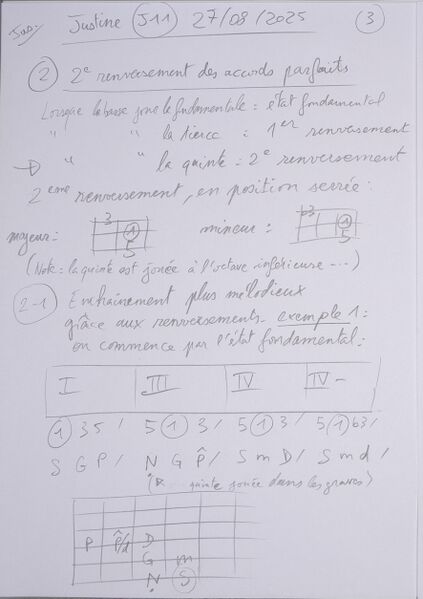 Justine J11 27/08/2025 3
2 2e renversement des accords parfaits
Lorsque la basse joue la fondamentale = état fondamental
" " la tierce : 1er renversement
→ " " la quinte : 2e renversement
2eme renversement, en position serrée :
majeur : 3 1 5 mineur : b3 1 5
(Note : la quinte est jouée à l'octave inférieure ---)
2-1 Enchaînement plus mélodieux
grâce aux renversements. exemple 1 :
on commence par l'état fondamental :
I III IV IV-
1 3 5 / 5 1 3 / 5 1 3 / 5 1 b3 /
S G P / N G P̂ / S m D / S m d /
quinte jouée dans les graves)
P P̂/d D
G m
N S